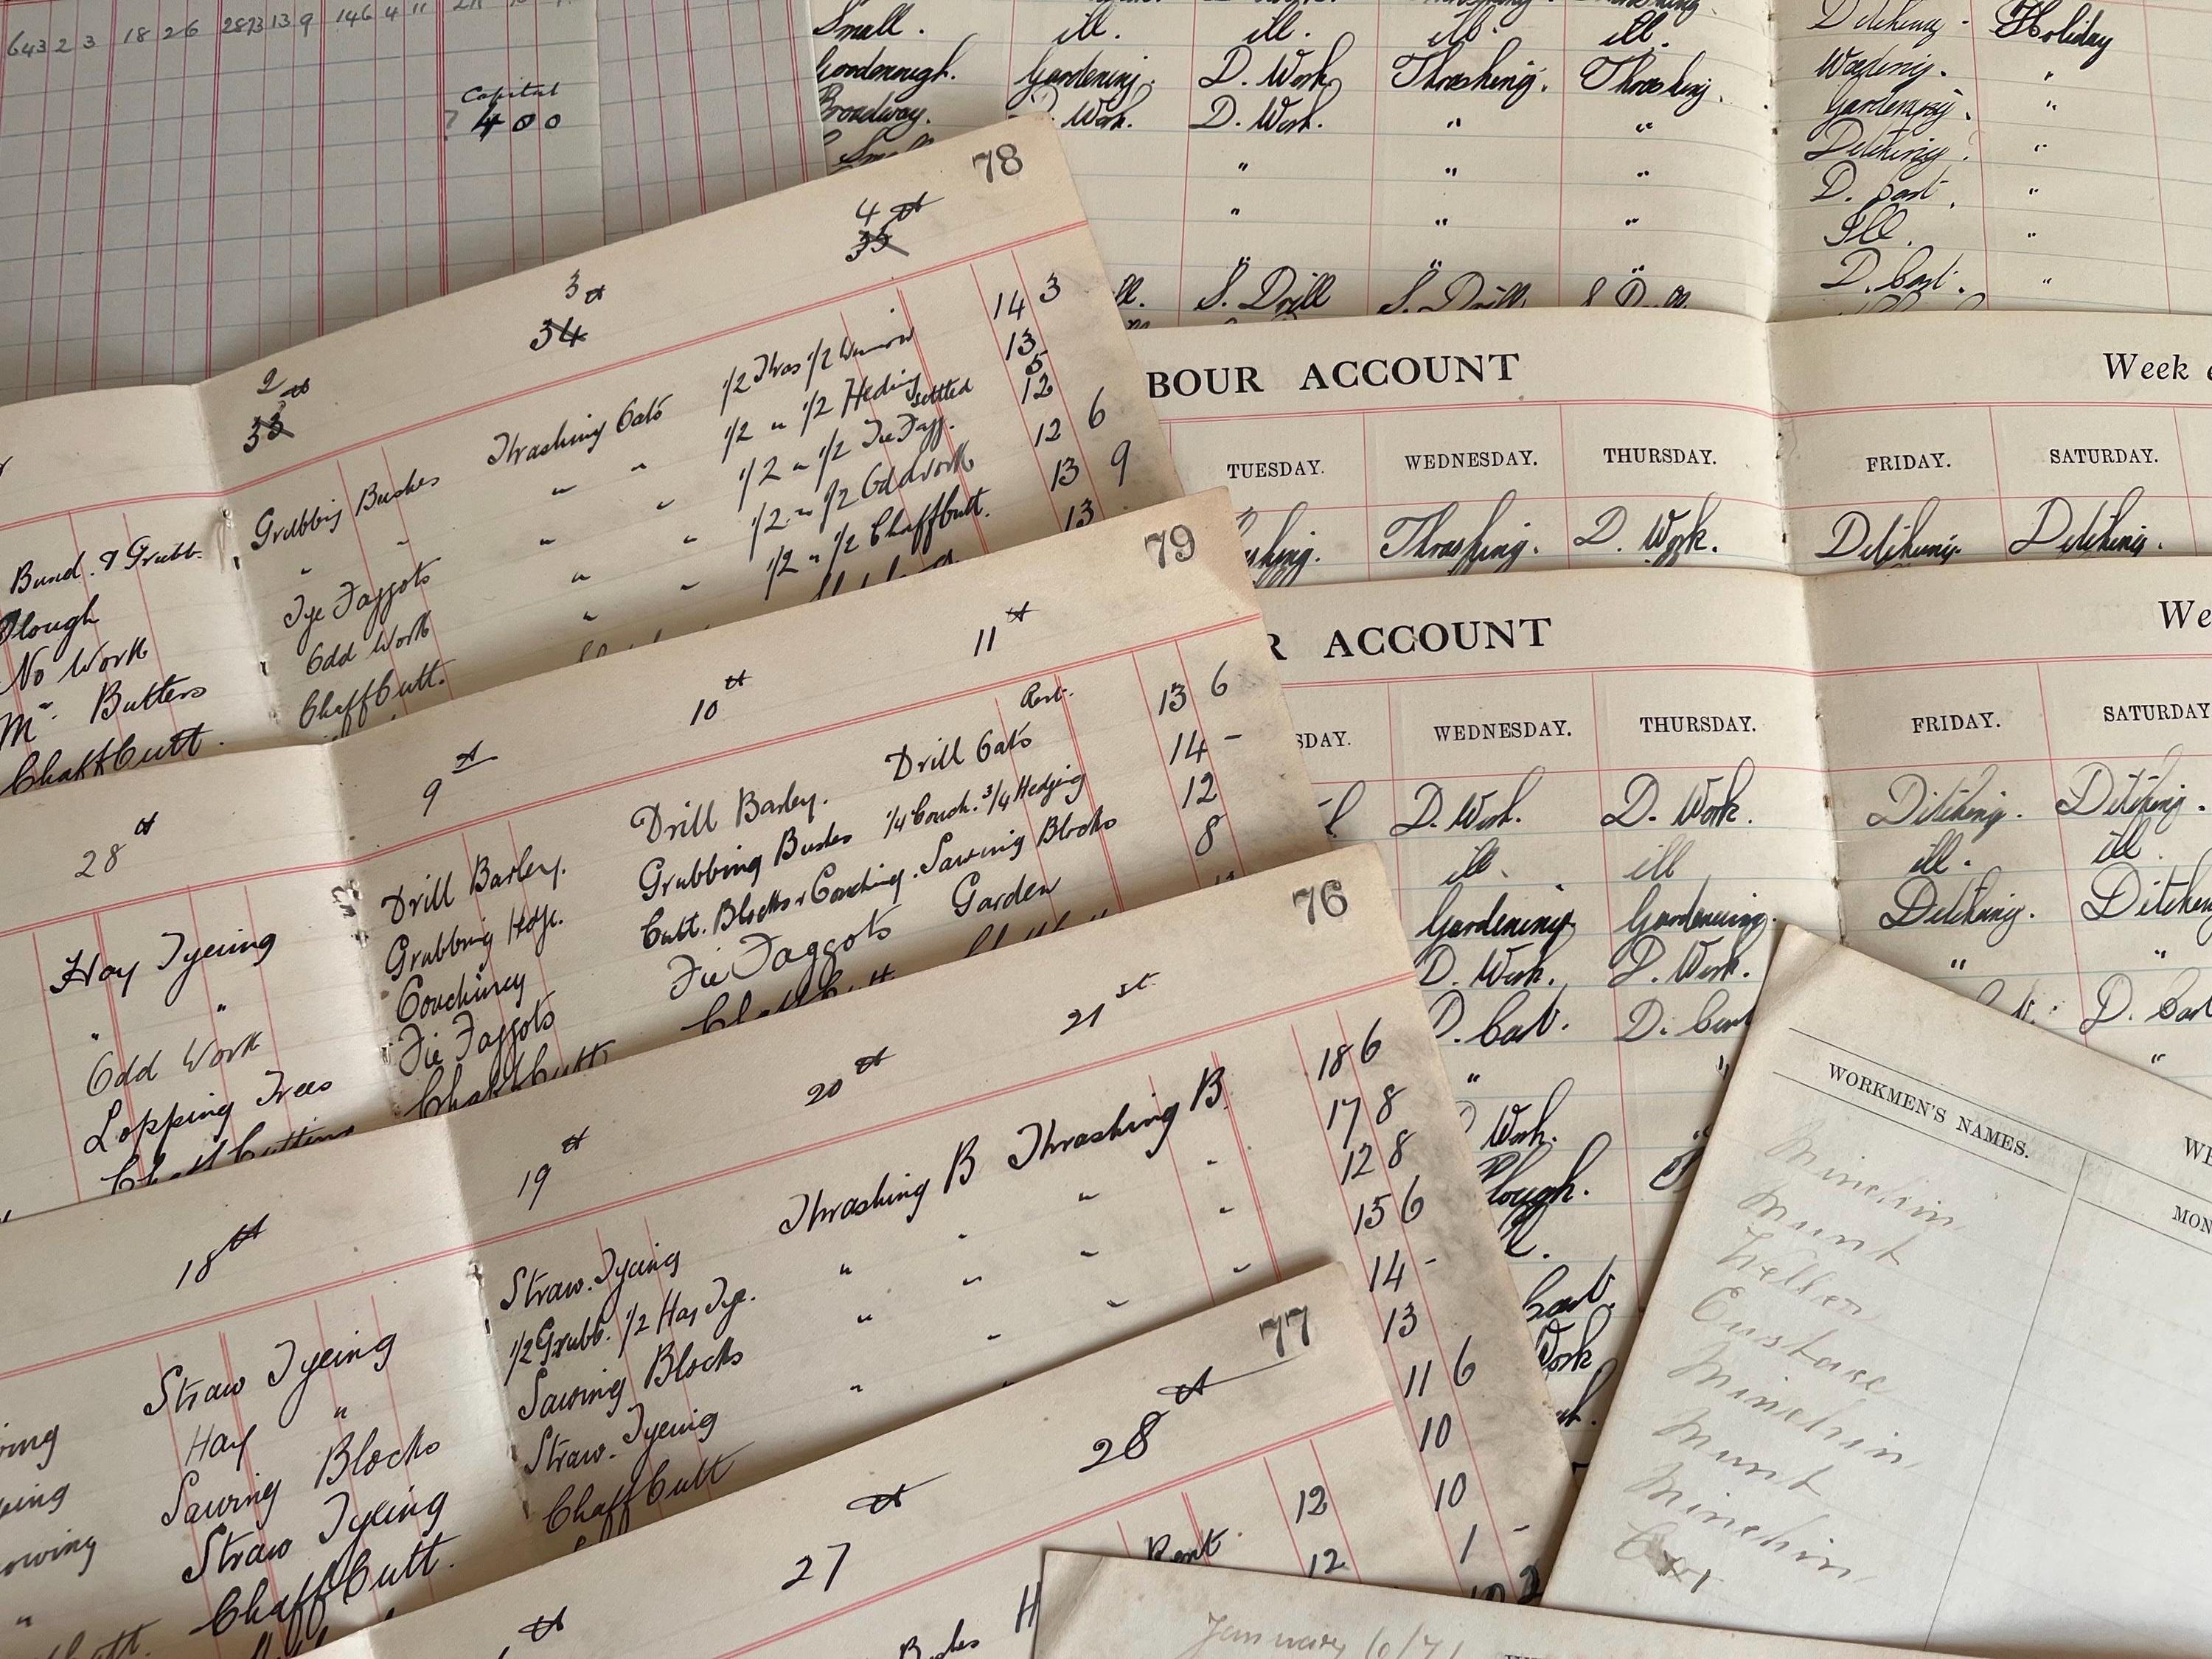 643 2 3 18 2 6 2873 13 9 146 4 11
Capital
? 400
Small. ill. ill. ill. ill.
Goodenough. Gardening. D. Work Thrashing. Thrashing.
Broadway. D. Work. D. Work. " "
" " "
" " "
" " "
S. Drill S. Drill
Ditching. Holiday
"
Gardening. "
Ditching. "
D. Cart. "
Ill. "
D. Cart. "
78
2nd 3rd 4th
33 34 35
14 3
13
5
12
12 6
13 9
13
Thrashing Oats
Grubbing Bushes
1/2 " 1/2 Heding
settled
1/2 " 1/2 Tie Fagg.
1/2 " 1/2 Odd Work
1/2 " 1/2 Chaffcutt.
Tye Faggots
Odd Work
Chaff Cutt.
Bund. & Grubb.
Plough
No Work
Mr. Butters
Chaff Cutt.
BOUR ACCOUNT Week
TUESDAY. WEDNESDAY. THURSDAY. FRIDAY. SATURDAY.
Thrashing. D. Work. Ditching. Ditching.
79
9th 10th 11th
Rest.
Drill Barley. Drill Barley. Drill Oats 13 6
Grubbing Hdge. Grubbing Bushes 1/4 Couch. 3/4 Hedging 14 -
Couching Cutt. Blocks & Couching. Sawing Blocks 12
Tie Faggots Tie Faggots Garden 8
Chaff Cutt
28th
Hay Tyeing
" "
Odd Work
Lopping Trees
Chaff Cutting
R ACCOUNT We
SDAY. WEDNESDAY. THURSDAY. FRIDAY. SATURDAY
D. Work. D. Work. Ditching. Ditching.
ill. ill ill. ill.
Gardening. Gardening. Ditching. Ditching
D. Work. D. Work. " "
D. Cart. D. Cart D. Cart
" "
Work.
Plough.
Cart.
Work
76
18th 19th 20th 21st
Straw Tyeing Straw. Tyeing Thrashing B Thrashing B. 18 6
Hay " 1/2 Grubb. 1/2 Hay Tye. " " 17 8
Sawing Blocks Sawing Blocks " " 12 8
Straw Tyeing Straw. Tyeing " " 15 6
Chaff Cutt. Chaff Cutt " " 14 -
13
11 6
10
10
1 -
77
27 28th
Rent. 12
12
WORKMEN'S NAMES.
MON
Minchin
Munt
Weller
Eustace
Minchin
Munt
Minchin
January 6/71